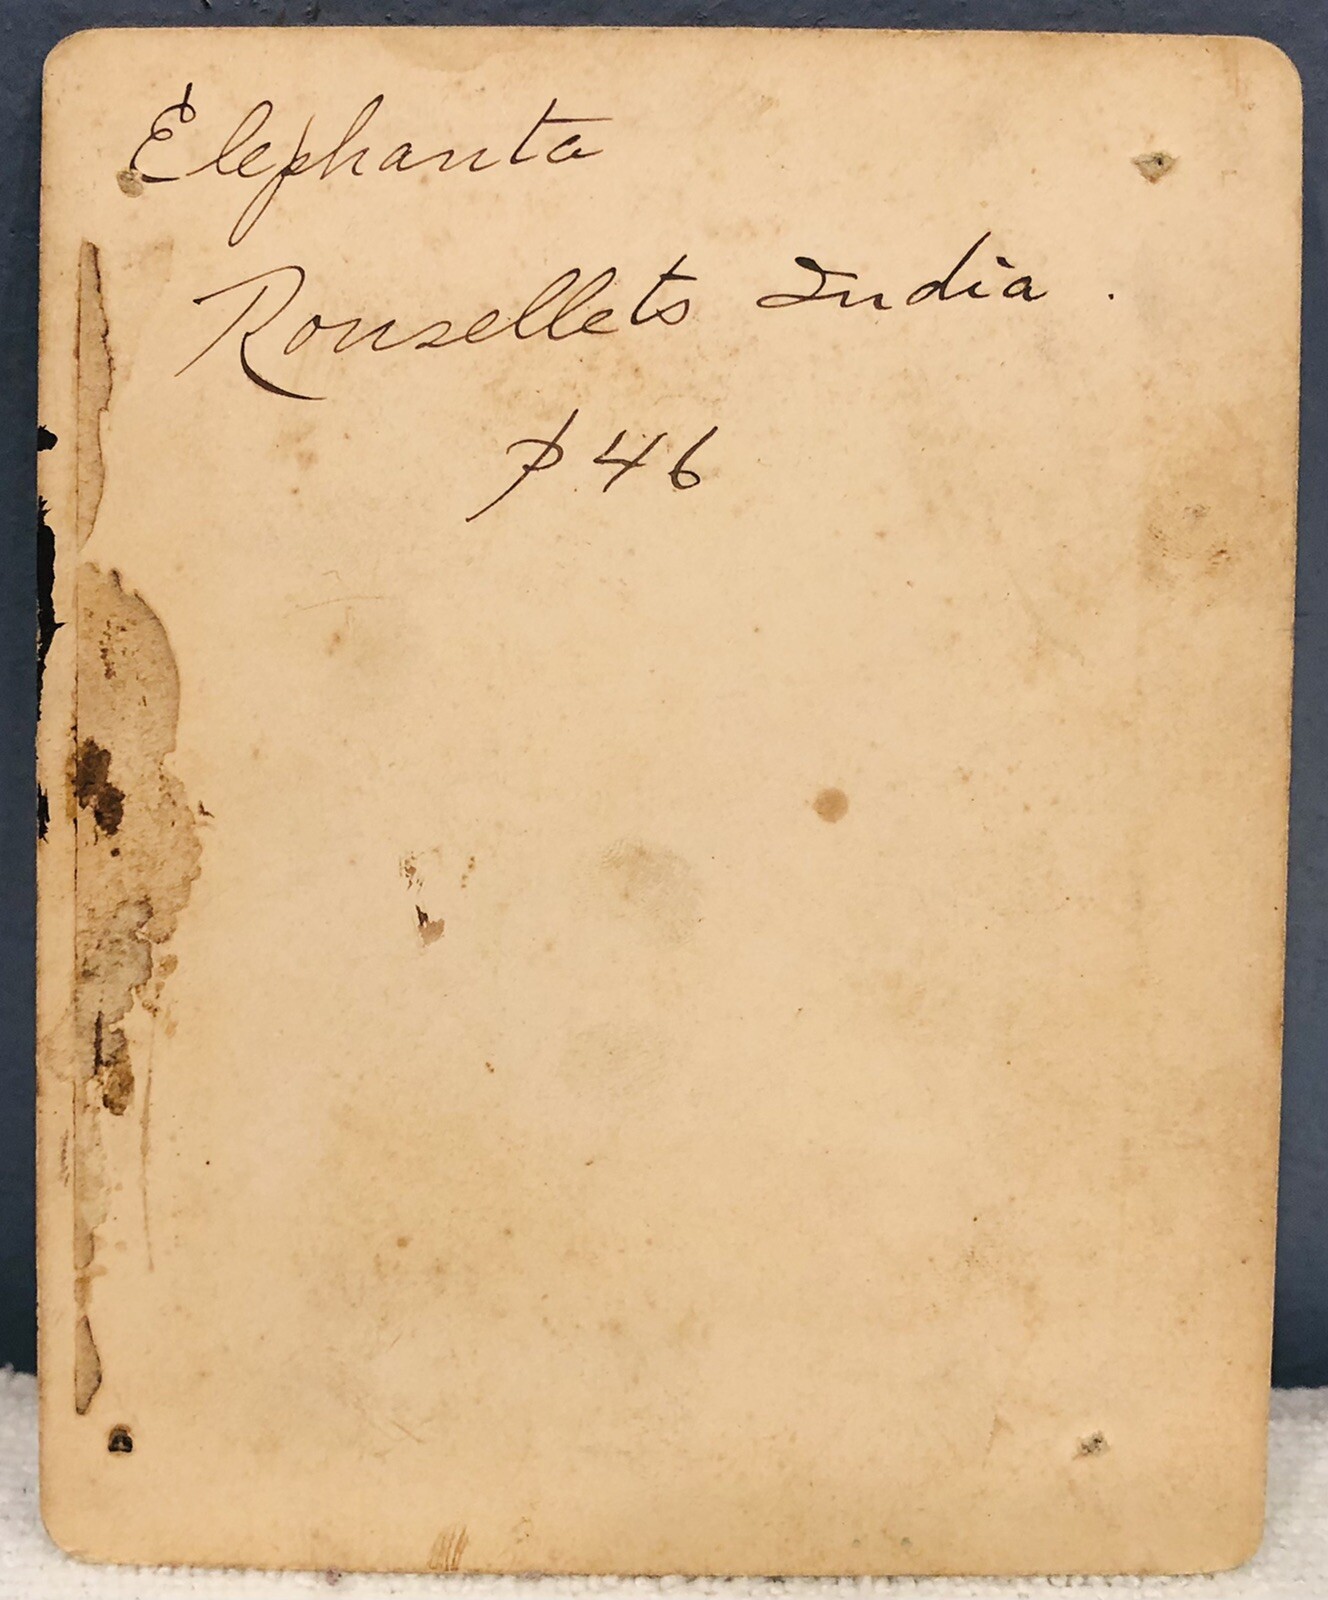 Elephanta
Rousellets India.
p 46